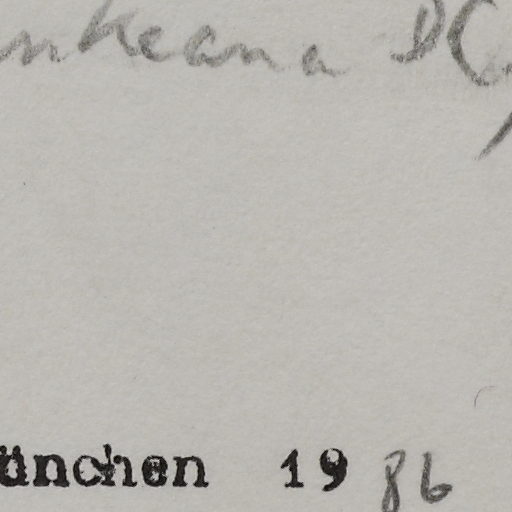 nkeana DC
ünchen 19 86